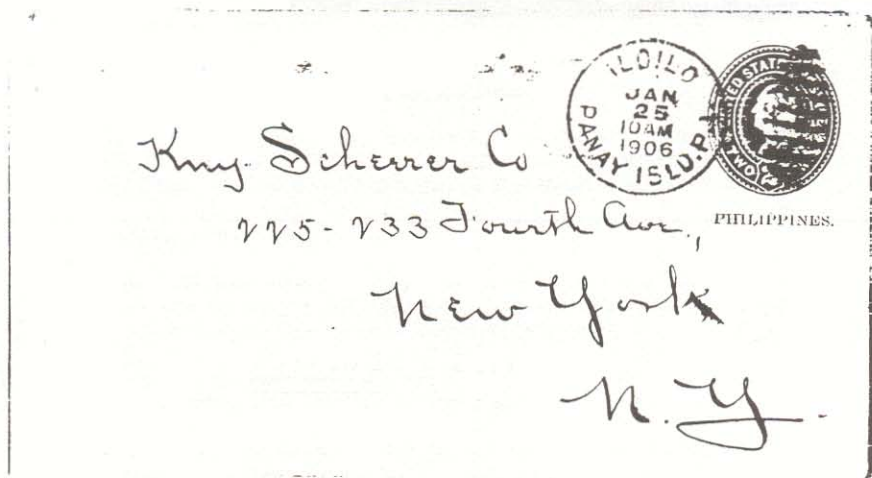 ILOILO
JAN
25
10AM
1906
PANAY ISLD. P.I.
UNITED STATES
TWO
PHILIPPINES.
Kny-Scheerer Co
225-233 Fourth Ave.,
New York
N.Y.